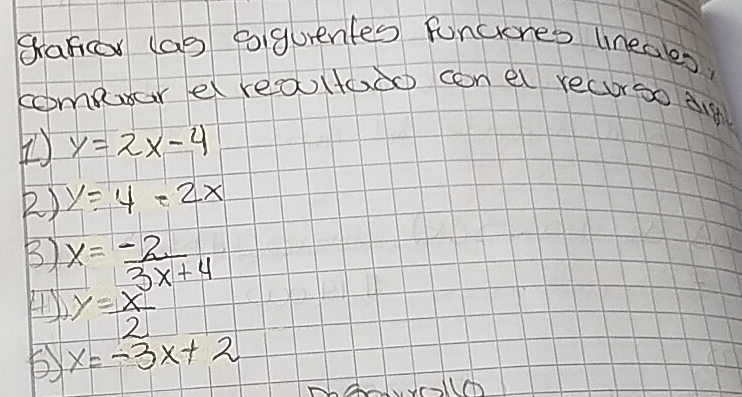 Graficar las siguientes funciones lineales,
comparar el resultado con el recurso
1) y = 2x - 4
2) y = 4 - 2x
3) x = -2 / 3x + 4
4) y = x / 2
5) x = -3x + 2
Desarrollo